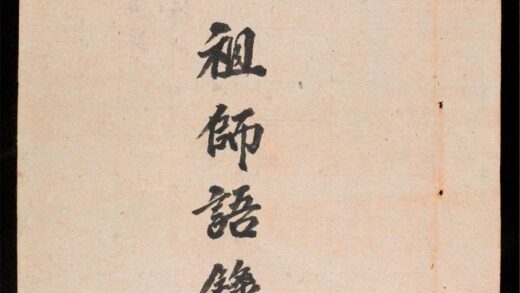 祖師語錄